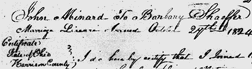 John Minard To Barbary Shaffer
Marriage License Issued Octobr 29th 1824
Certificate
State of Ohio
Harrison County
I do hereby certify that I joined